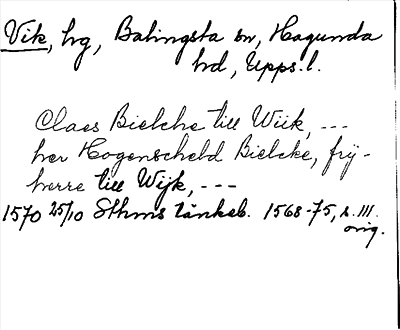 Vik, hg, Balingsta sn, Hagunda
hd, Upps. l.
Claes Bielche till Wiik, ---
her Hogenscheld Bielcke, frÿ-
herre till Wijk, ---
1570 25/10 Sthms tänkeb. 1568-75, s. 111.
orig.